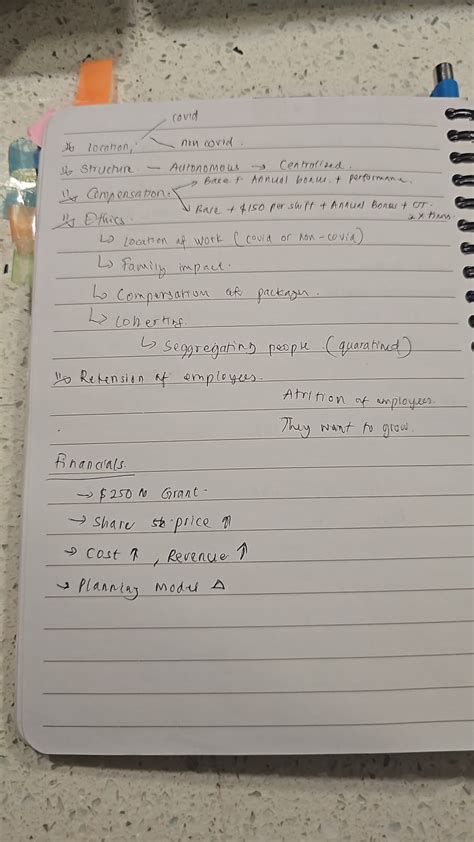 covid
Location,
non covid.
Structure — Autonomous → Centralized.
Compensation
Base + Annual bonus + performance.
Base + $150 per shift + Annual Bonus + OT
2x times
Ethics
↳ Location of work (covid or non-covid)
↳ Family impact.
↳ Compensation packages.
↳
↳ Seggregating people (quaratined)
Retension of employees.
Atrition of employees.
They want to grow.
Financials
→ $250 Grant.
→ Share price ⇑
→ Cost ↑, Revenue ↑
→ Planning Model Δ